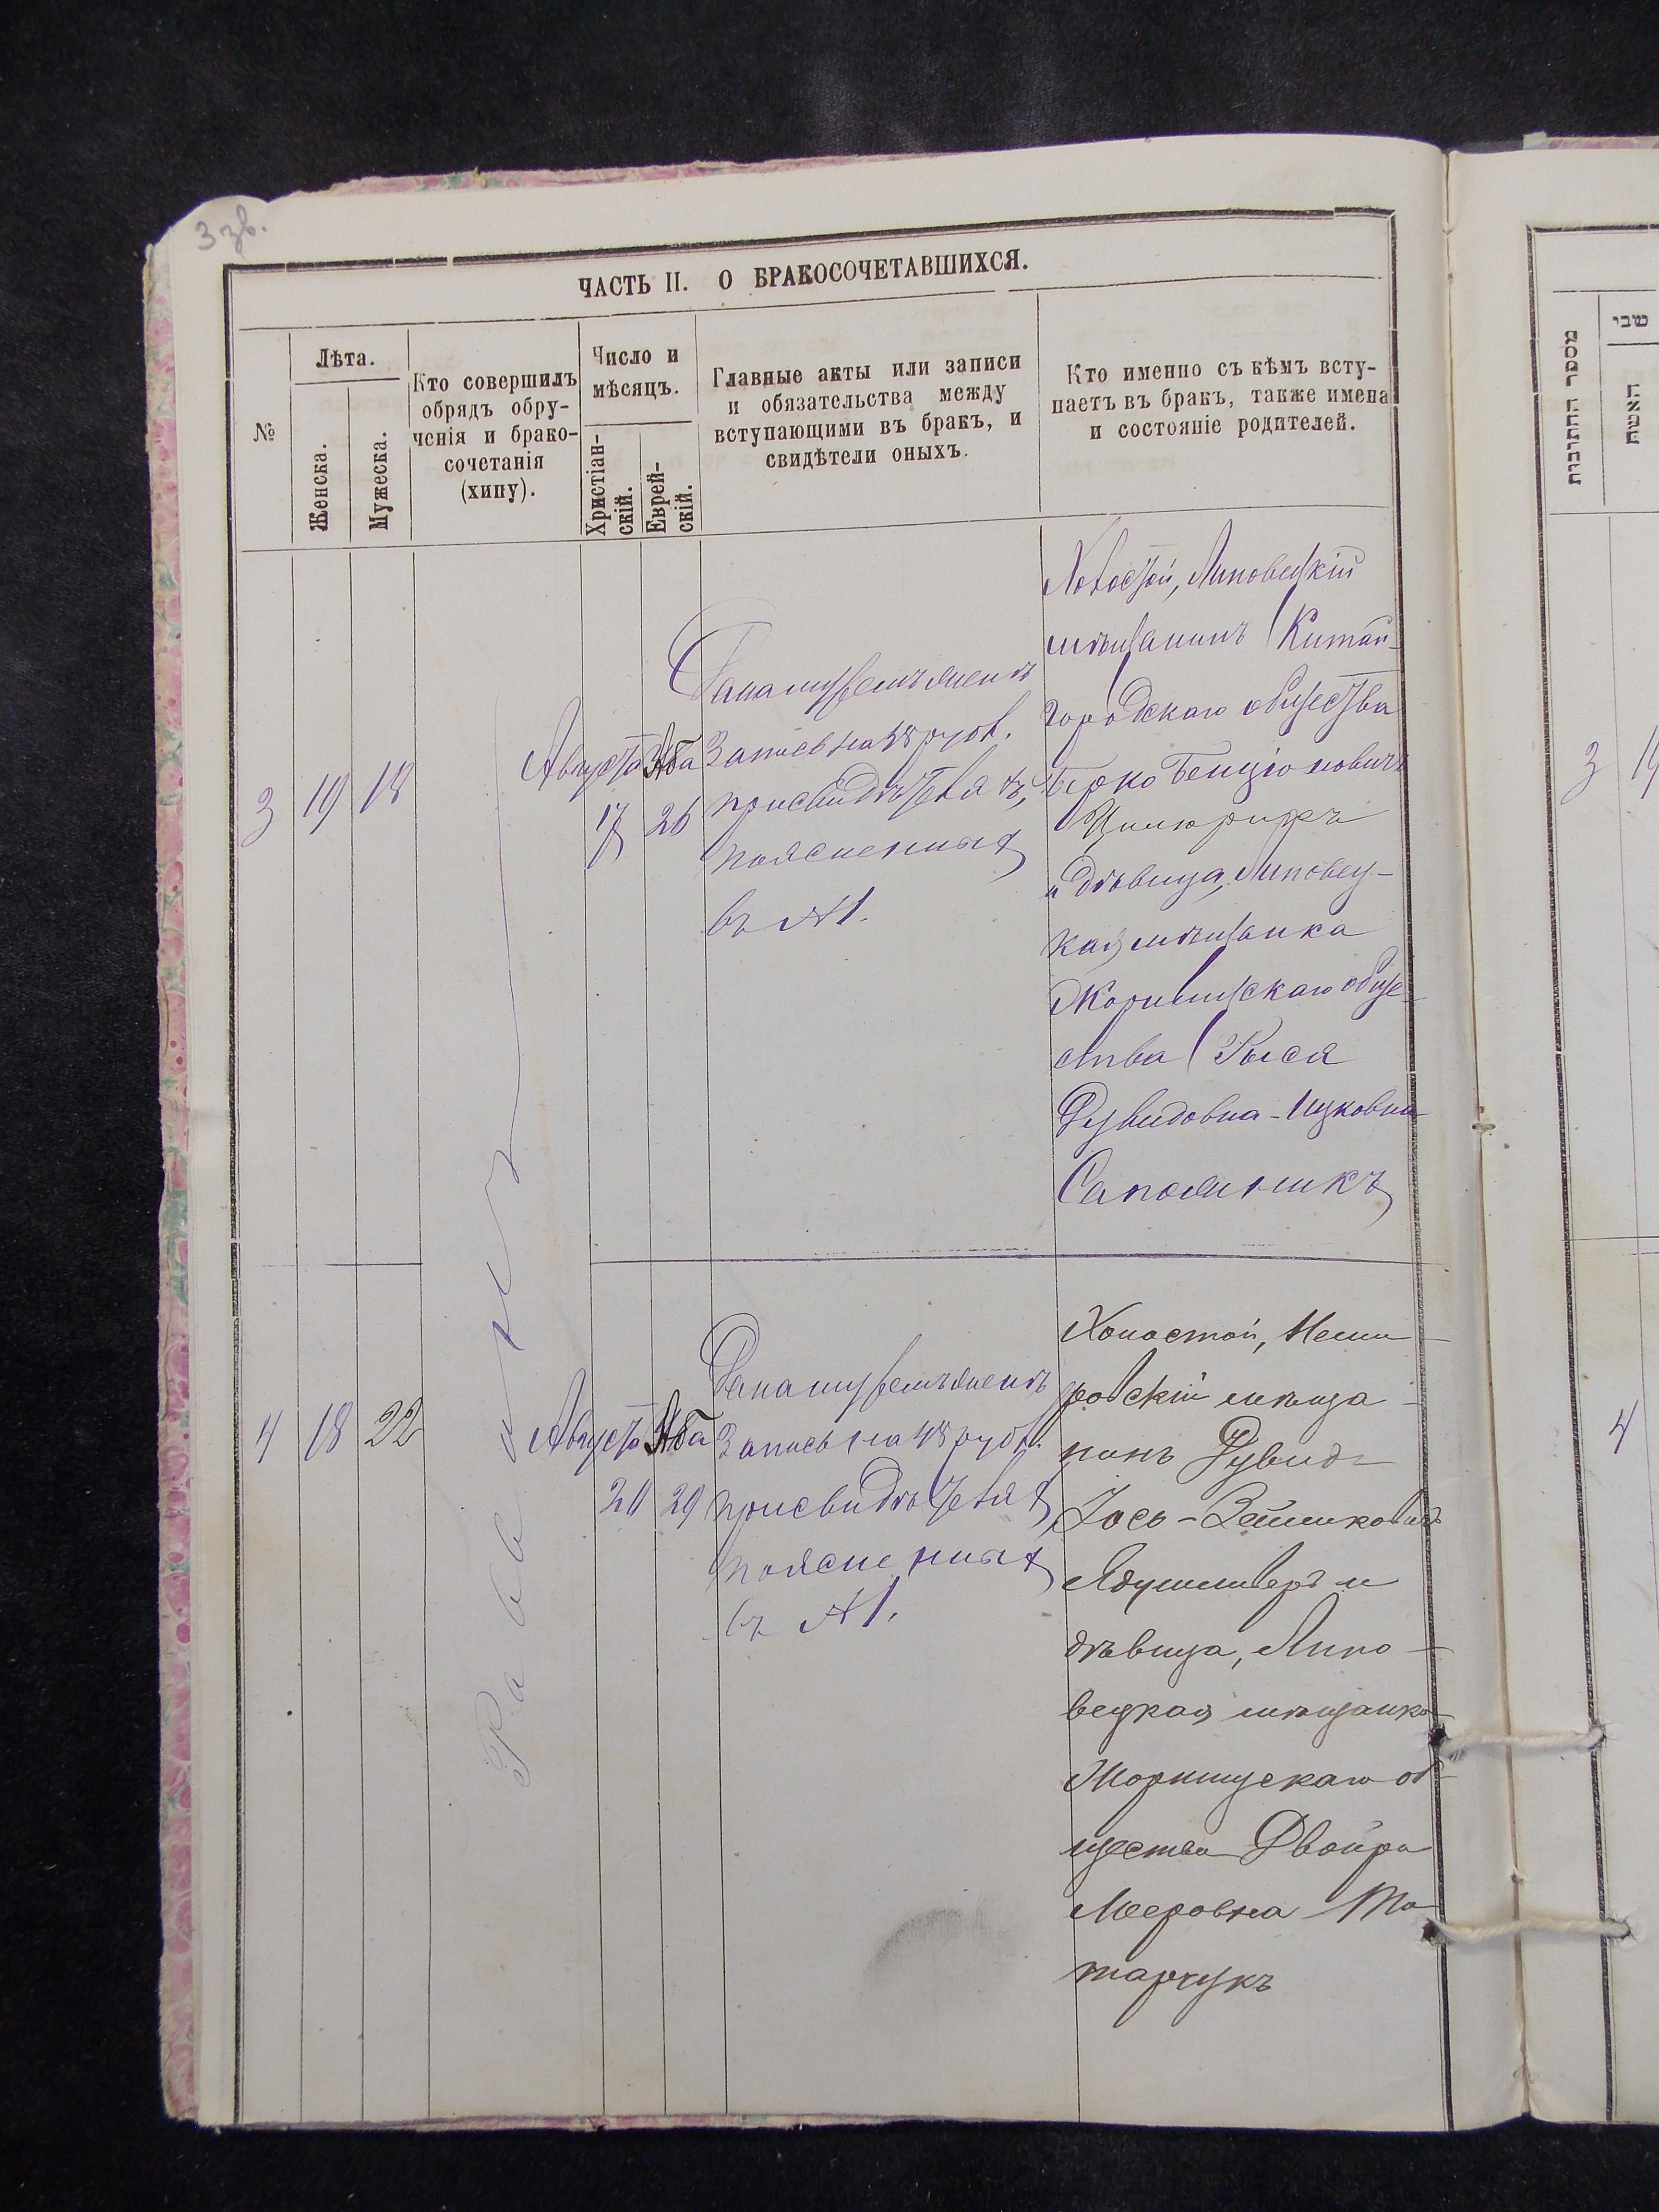 3 зв.
ЧАСТЬ II. О БРАКОСОЧЕТАВШИХСЯ.
№
Лѣта.
Женска.
Мужеска.
Кто совершилъ
обрядъ обру-
ченія и брако-
сочетанія
(хипу).
Число и
мѣсяцъ.
Христіан-
скій.
Еврей-
скій.
Главные акты или записи
и обязательства между
вступающими въ бракъ, и
свидѣтели оныхъ.
Кто именно съ кѣмъ всту-
паетъ въ бракъ, также имена
и состояніе родителей.
Раввинъ
3
19
18
Августа
17
Аба
26
Дана
запись на 48 руб.
при свидѣтеляхъ,
поясненныхъ
въ №1.
Холостой, Липовецкій
мѣщанинъ Китай-
городскаго общества
Берко Бенціоновичъ
и дѣвица, Липовец-
кая мѣщанка
Жорнищскаго обще-
ства Рыся
Дувидовна-Ицковна
4
18
22
Августа
20
Аба
29
Дана
запись на 48 руб.
при свидѣтеляхъ
поясненныхъ
въ №1.
Холостой, Неми-
ровскій мѣща-
нинъ Дувидъ-
Іось-
и
дѣвица, Липо-
вецкая мѣщанка
Жорнищскаго об-
щества Двойра
Мееровна Та-
тарчукъ
מספר החתונות
שני
האשה
3
19
4